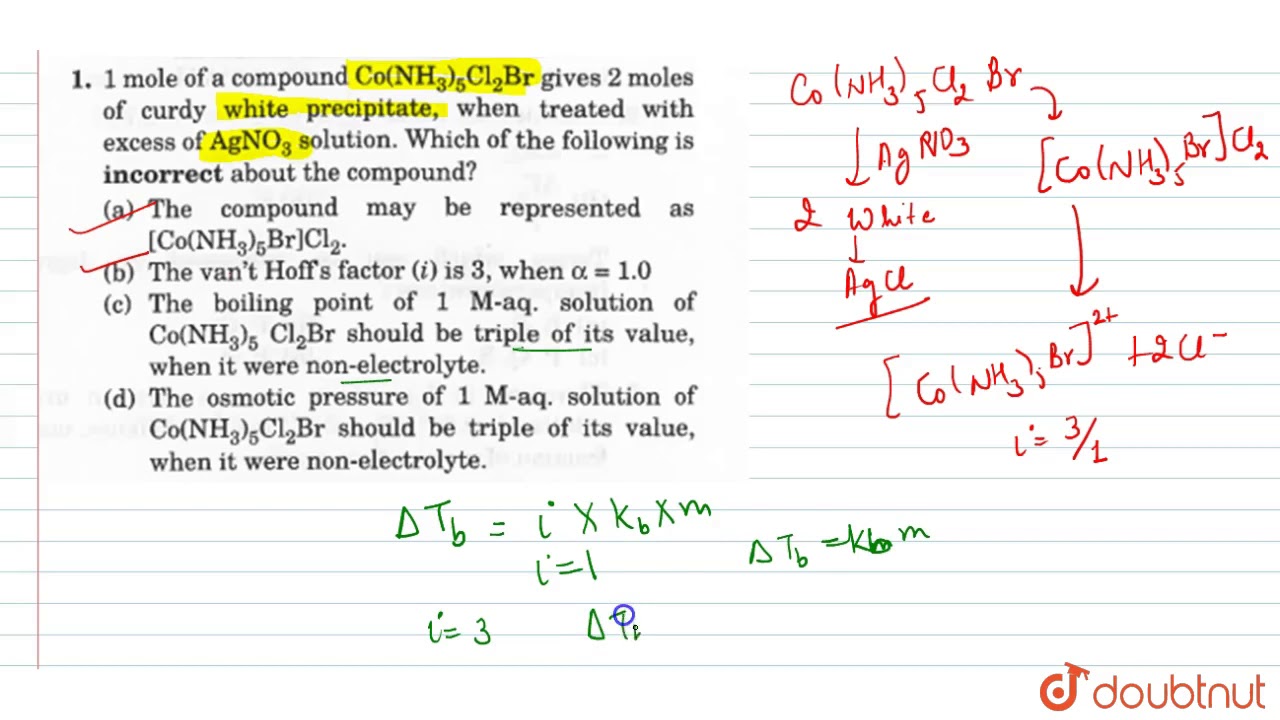 1. 1 mole of a compound Co(NH₃)₅Cl₂Br gives 2 moles
of curdy white precipitate, when treated with
excess of AgNO₃ solution. Which of the following is
incorrect about the compound?
(a) The compound may be represented as
[Co(NH₃)₅Br]Cl₂.
(b) The van't Hoff's factor (i) is 3, when α = 1.0
(c) The boiling point of 1 M-aq. solution of
Co(NH₃)₅ Cl₂Br should be triple of its value,
when it were non-electrolyte.
(d) The osmotic pressure of 1 M-aq. solution of
Co(NH₃)₅Cl₂Br should be triple of its value,
when it were non-electrolyte.
Co(NH₃)₅Cl₂ Br
↓ AgNO₃
[Co(NH₃)₅Br]Cl₂
2 White
↓
AgCl
[Co(NH₃)₅Br]²⁺ + 2Cl⁻
i = 3/1
ΔT_b = i × K_b × m
i = 1
ΔT_b = K_b m
i = 3
doubtnut